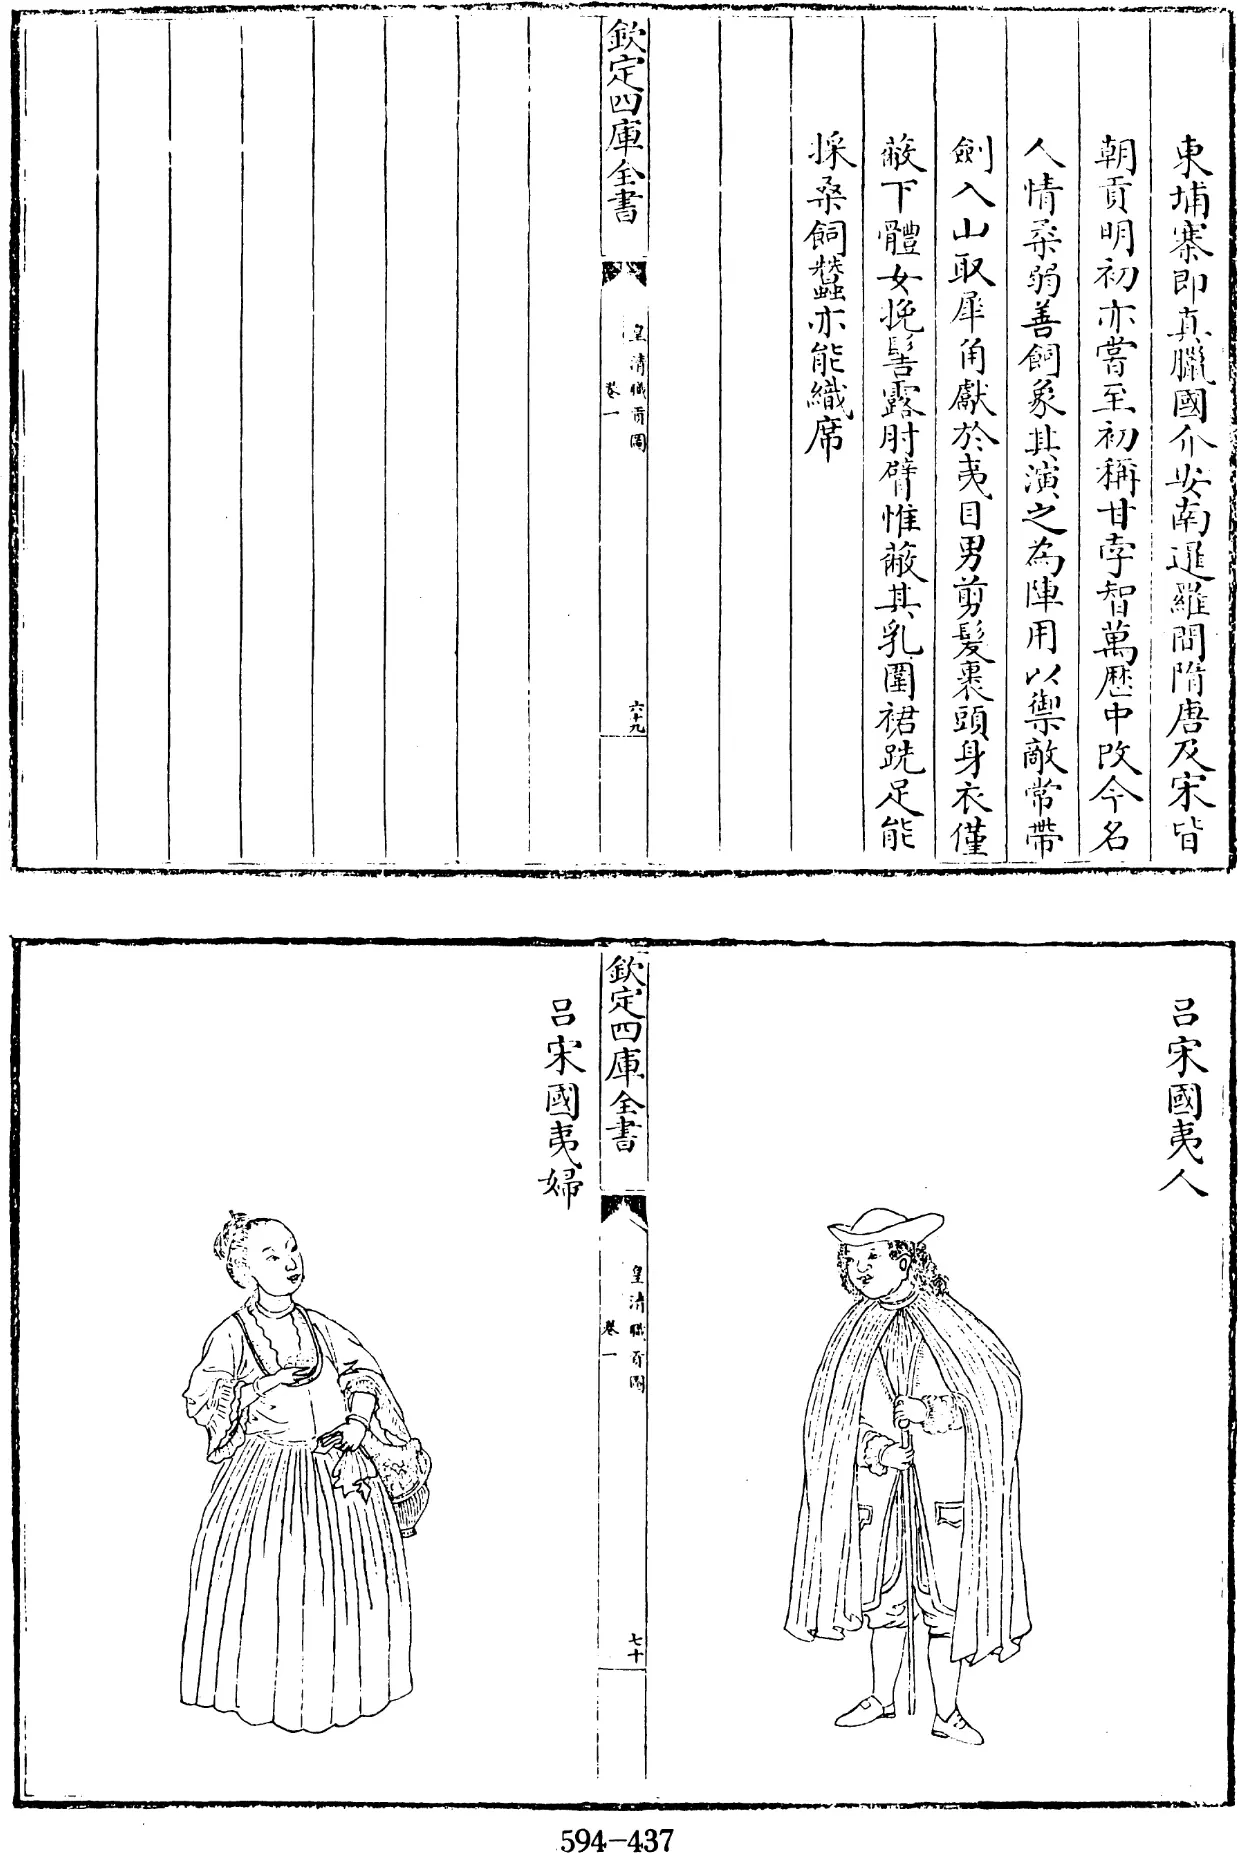 東埔寨即真臘國介安南暹羅間隋唐及宋皆
朝貢明初亦嘗至初稱甘孛智萬歷中改今名
人情柔弱善飼象其演之為陣用以禦敵常帶
劍入山取犀角獻於夷目男剪髮裹頭身衣僅
蔽下體女挽髻露肘臂惟蔽其乳圍裙跣足能
採桑飼蠶亦能織席
欽定四庫全書
皇清職貢圖
卷一
六十九
呂宋國夷人
欽定四庫全書
皇清職貢圖
卷一
七十
呂宋國夷婦
594-437